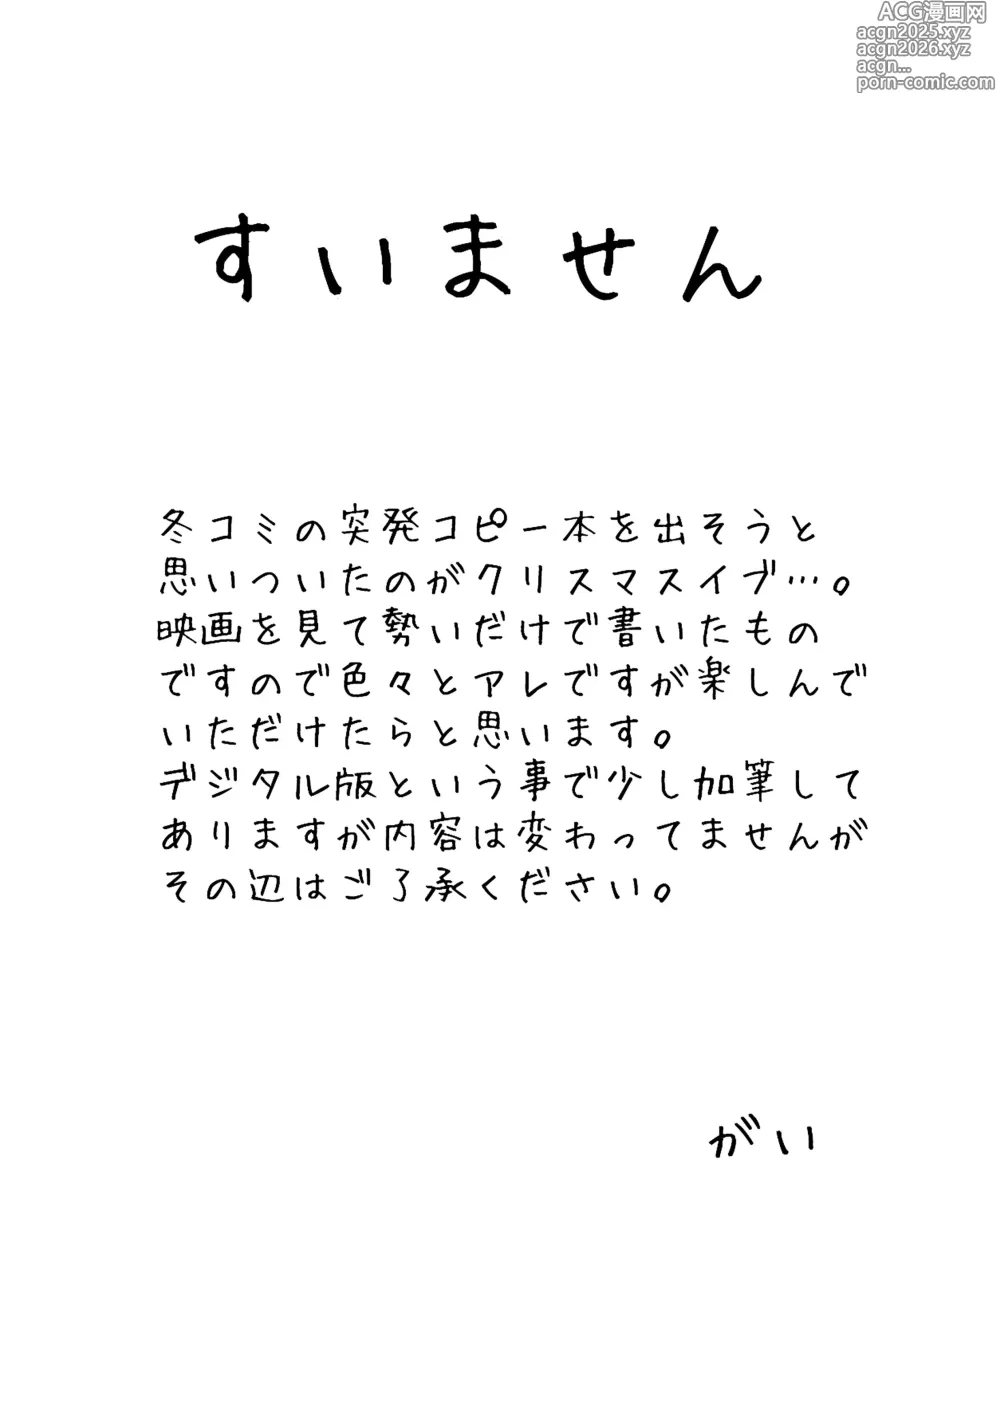 ACG漫画网
acgn2025.xyz
acgn2026.xyz
acgn...
porn-comic.com
すいません
冬コミの突発コピー本を出そうと
思いついたのがクリスマスイブ…。
映画を見て勢いだけで書いたもの
ですので色々とアレですが楽しんで
いただけたらと思います。
デジタル版という事で少し加筆して
ありますが内容は変わってませんが
その辺はご了承ください。
がい